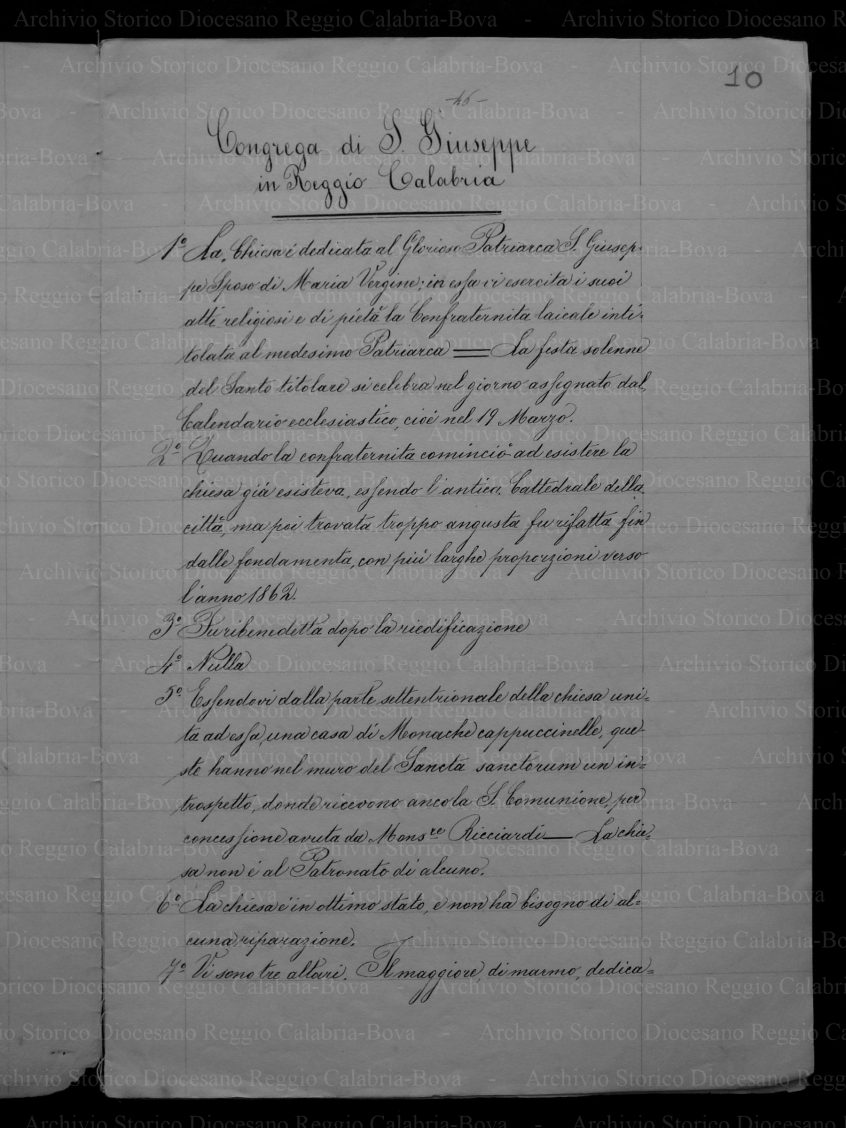 10
-46-
Congrega di S. Giuseppe
in Reggio Calabria
1º La Chiesa è dedicata al Glorioso Patriarca S. Giusep-
pe Sposo di Maria Vergine; in essa vi esercita i suoi
atti religiosi e di pietà la Confraternita laicale inti-
tolata al medesimo Patriarca — La festa solenne
del Santo titolare si celebra nel giorno assegnato dal
Calendario ecclesiastico, cioè nel 19 Marzo.
2º Quando la confraternità cominciò ad esistere la
chiesa già esisteva, essendo l'antica Cattedrale della
città, ma poi trovata troppo angusta fu rifatta fin
dalle fondamenta, con più larghe proporzioni verso
l'anno 1862.
3º Fu ribenedetta dopo la riedificazione
4º Nulla
5º Essendovi dalla parte settentrionale della chiesa uni-
ta ad essa, una casa di Monache cappuccinelle, que-
ste hanno nel muro del Sancta sanctorum un in=
trospetto, donde ricevono anco la S. Comunione, per
concessione avuta da Monsre Ricciardi — La chie=
sa non è al Patronato di alcuno.
6º La chiesa è in ottimo stato, e non ha bisogno di al=
cuna riparazione.
7º Vi sono tre altari. Il maggiore, di marmo, dedica=
Archivio Storico Diocesano Reggio Calabria-Bova